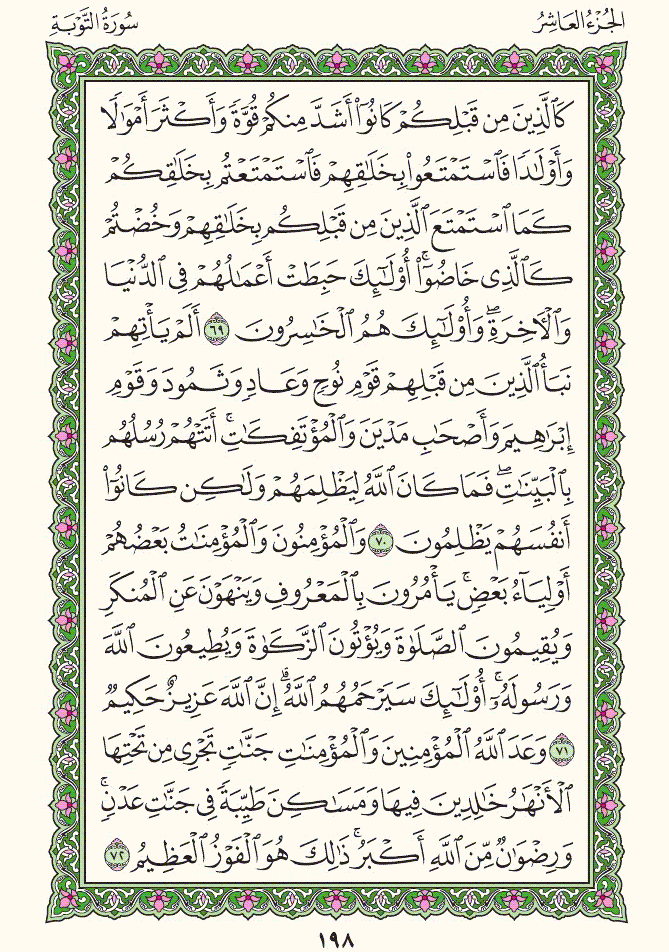 الجُزْءُ العَاشِرُ
سُورَةُ التَّوْبَةِ
كَٱلَّذِينَ مِن قَبْلِكُمْ كَانُوٓا۟ أَشَدَّ مِنكُمْ قُوَّةً وَأَكْثَرَ أَمْوَٰلًا
وَأَوْلَـٰدًا فَٱسْتَمْتَعُوا۟ بِخَلَـٰقِهِمْ فَٱسْتَمْتَعْتُم بِخَلَـٰقِكُمْ
كَمَا ٱسْتَمْتَعَ ٱلَّذِينَ مِن قَبْلِكُم بِخَلَـٰقِهِمْ وَخُضْتُمْ
كَٱلَّذِى خَاضُوٓا۟ ۚ أُو۟لَـٰٓئِكَ حَبِطَتْ أَعْمَـٰلُهُمْ فِى ٱلدُّنْيَا
وَٱلْـَٔاخِرَةِ ۖ وَأُو۟لَـٰٓئِكَ هُمُ ٱلْخَـٰسِرُونَ ٦٩ أَلَمْ يَأْتِهِمْ
نَبَأُ ٱلَّذِينَ مِن قَبْلِهِمْ قَوْمِ نُوحٍ وَعَادٍ وَثَمُودَ وَقَوْمِ
إِبْرَٰهِيمَ وَأَصْحَـٰبِ مَدْيَنَ وَٱلْمُؤْتَفِكَـٰتِ ۚ أَتَتْهُمْ رُسُلُهُم
بِٱلْبَيِّنَـٰتِ ۖ فَمَا كَانَ ٱللَّهُ لِيَظْلِمَهُمْ وَلَـٰكِن كَانُوٓا۟
أَنفُسَهُمْ يَظْلِمُونَ ٧٠ وَٱلْمُؤْمِنُونَ وَٱلْمُؤْمِنَـٰتُ بَعْضُهُمْ
أَوْلِيَآءُ بَعْضٍ ۚ يَأْمُرُونَ بِٱلْمَعْرُوفِ وَيَنْهَوْنَ عَنِ ٱلْمُنكَرِ
وَيُقِيمُونَ ٱلصَّلَوٰةَ وَيُؤْتُونَ ٱلزَّكَوٰةَ وَيُطِيعُونَ ٱللَّهَ
وَرَسُولَهُۥٓ ۚ أُو۟لَـٰٓئِكَ سَيَرْحَمُهُمُ ٱللَّهُ ۗ إِنَّ ٱللَّهَ عَزِيزٌ حَكِيمٌ
٧١ وَعَدَ ٱللَّهُ ٱلْمُؤْمِنِينَ وَٱلْمُؤْمِنَـٰتِ جَنَّـٰتٍ تَجْرِى مِن تَحْتِهَا
ٱلْأَنْهَـٰرُ خَـٰلِدِينَ فِيهَا وَمَسَـٰكِنَ طَيِّبَةً فِى جَنَّـٰتِ عَدْنٍ ۚ
وَرِضْوَٰنٌ مِّنَ ٱللَّهِ أَكْبَرُ ۚ ذَٰلِكَ هُوَ ٱلْفَوْزُ ٱلْعَظِيمُ ٧٢
١٩٨